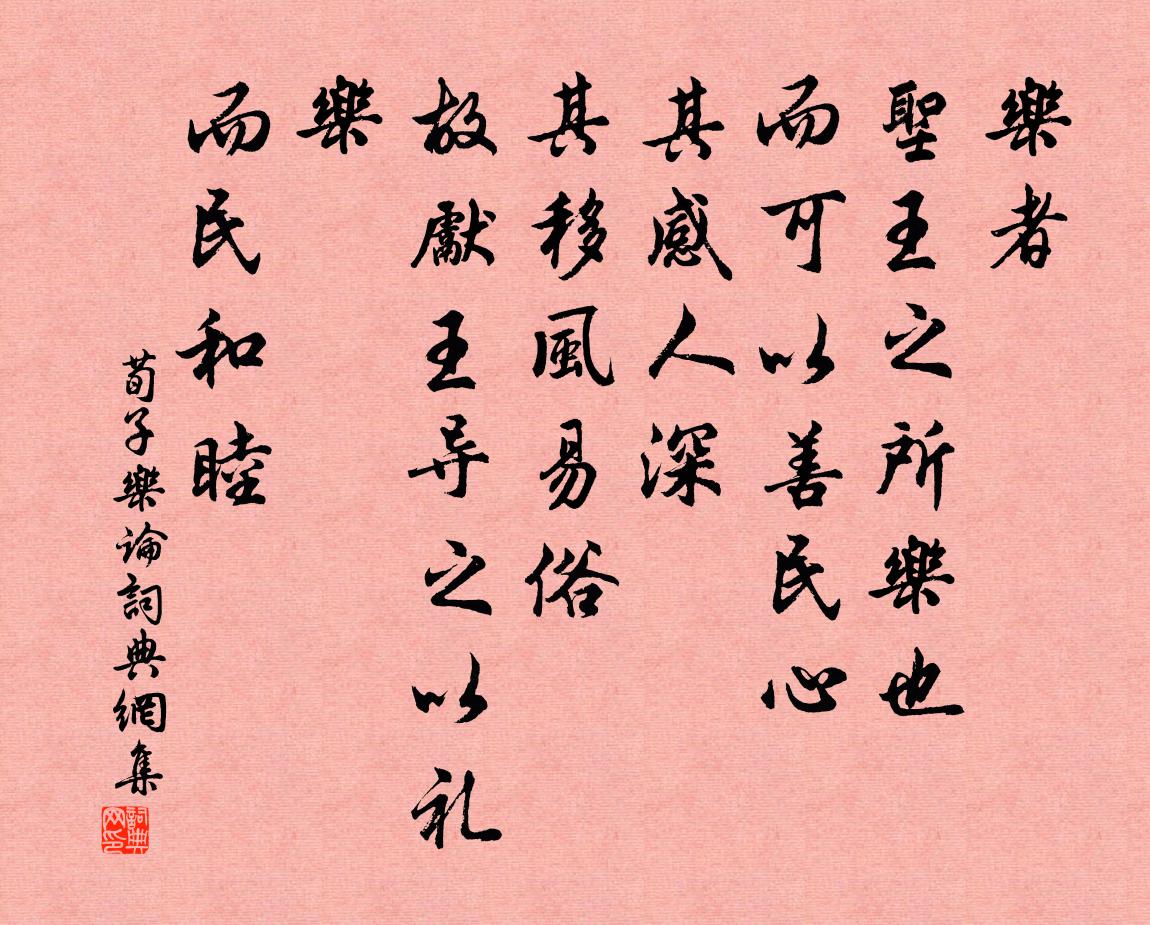 樂者
聖王之所樂也
而可以善民心
其感人深
其移風易俗
故獻王导之以礼
樂
而民和睦
荀子樂論詞典網集
詞典网印